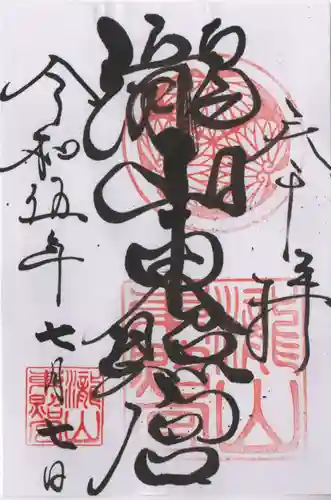 奉拝
瀧山東照宮
令和五年七月七日
瀧山
東照宮
瀧山
東照宮